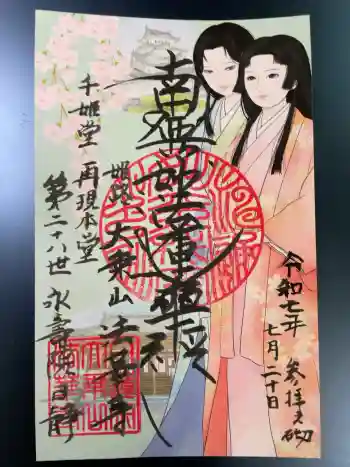 令和七年
七月二十日
参拝之砌
南無妙法蓮華経
姫路 大乗山 法華寺
千姫堂 再現本堂
第二十八世 永壽院日靜